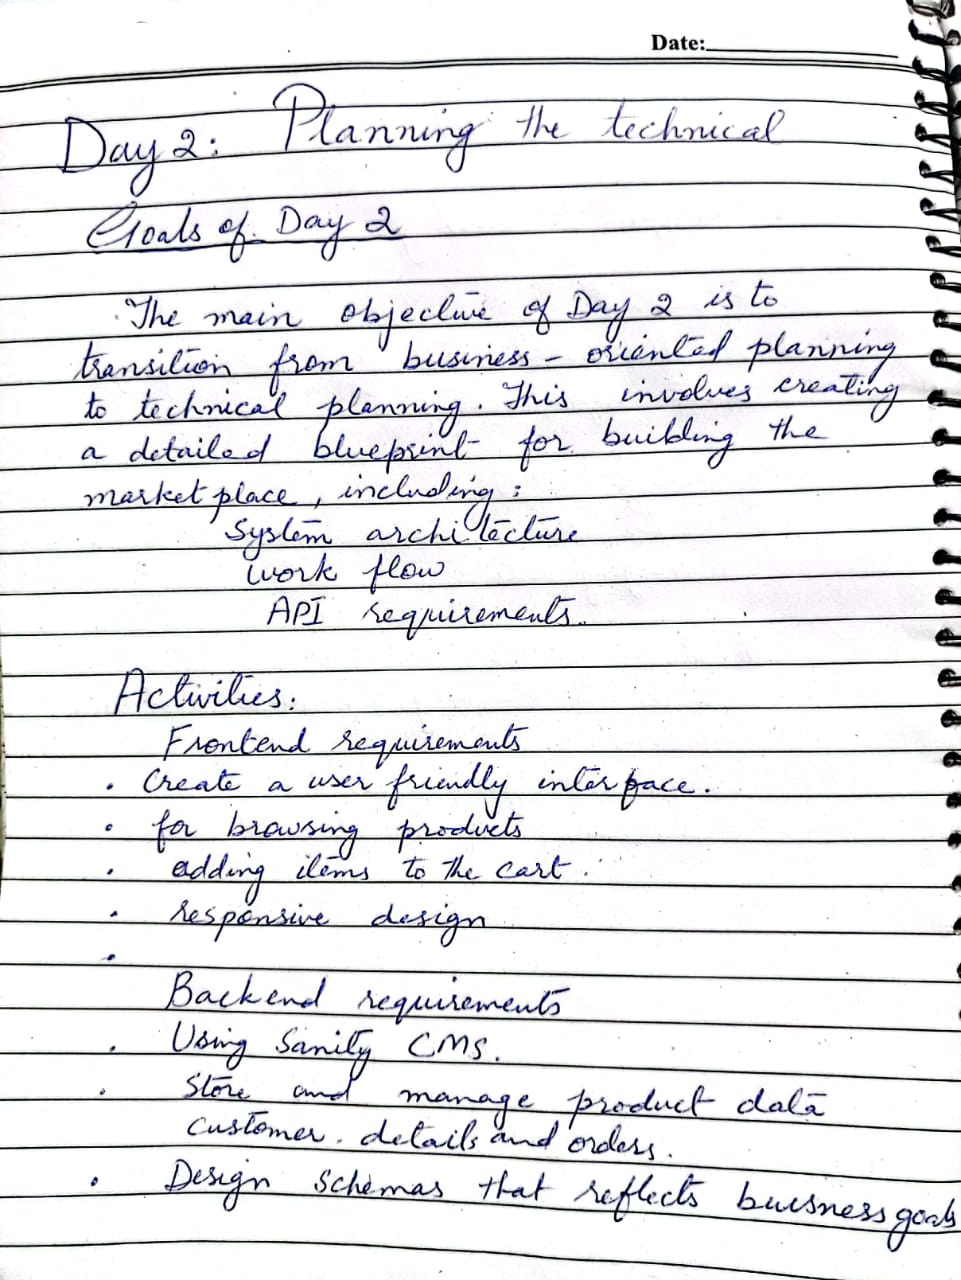 Date:
Day 2: Planning the technical
Goals of Day 2
The main objective of Day 2 is to
transition from business - oriented planning
to technical planning. This involves creating
a detailed blueprint for building the
market place, including :
System architecture
work flow
API requirements.
Activities:
Frontend requirements
• Create a user friendly interface.
• for browsing products
• adding items to the cart.
• responsive design
•
Backend requirements
• Using Sanity CMS.
• Store and manage product data
customer. details and orders.
• Design schemas that reflects buisness goals